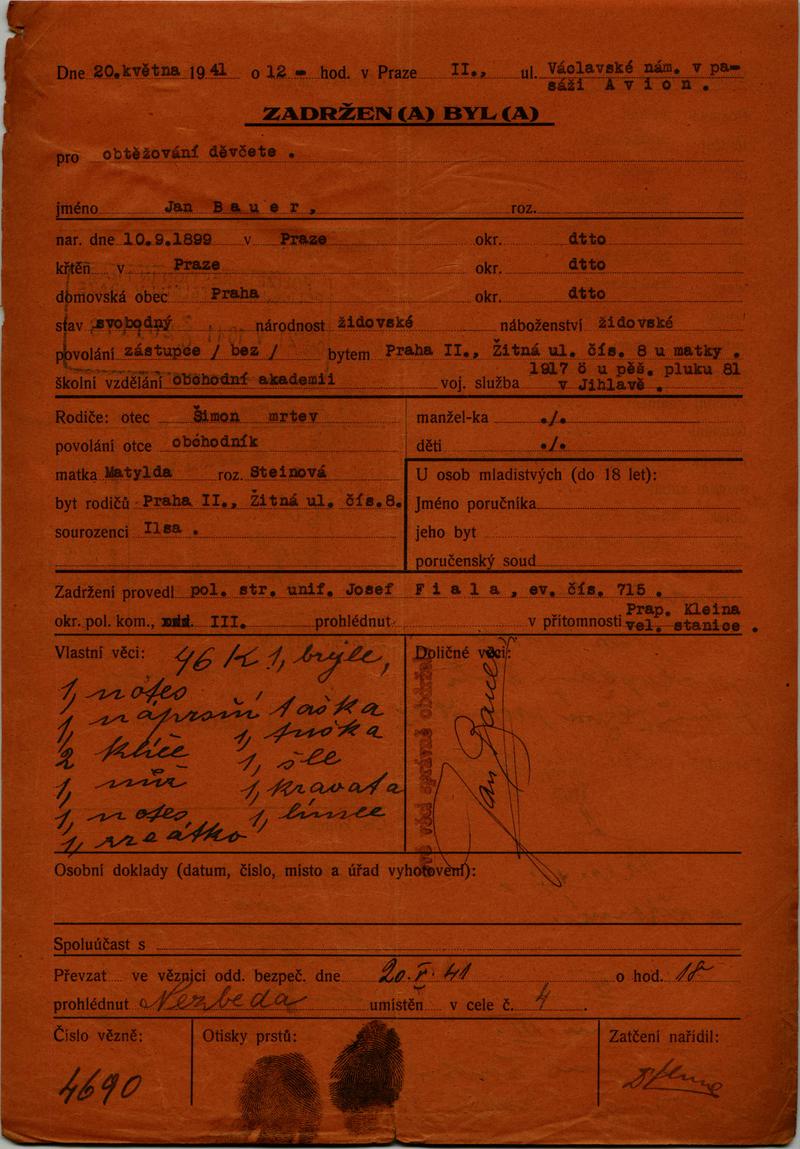 Dne 20.května 1941 o 12 - hod. v Praze II., ul. Václavské nám. v pa-
sáži Avion.
ZADRŽEN(A) BYL(A)
pro obtěžování děvčete .
jméno Jan Bauer, roz.
nar. dne 10.9.1899 v Praze okr. dtto
křtěn v Praze okr. dtto
domovská obec Praha okr. dtto
stav svobodný národnost židovské náboženství židovské
povolání zástupce / bez / bytem Praha II., Žitná ul. čís. 8 u matky .
školní vzdělání obchodní akademii voj. služba 1917 u pěš. pluku 81
v Jihlavě .
Rodiče: otec Šimon mrtev
povolání otce obchodník
matka Matylda roz. Steinová
byt rodičů Praha II., Žitná ul. čís.8.
sourozenci Ilsa .
manžel-ka ./.
děti ./.
U osob mladistvých (do 18 let):
Jméno poručníka
jeho byt
poručenský soud
Zadržení provedl pol. str. unif. Josef Fiala, ev. čís. 715 .
okr. pol. kom., III. prohlédnut v přítomnosti Prap. Kleina
vel. stanice .
Vlastní věci: 46 K 1, brejle,
1, notes
1, náprsní taška
2 klíče 1, tužka
1, nůž 1, šle
1, notes 1, kravata
1, zrcátko 1, límec
Doličné věci:
své věci správně obdržel
Jan Bauer
Osobní doklady (datum, číslo, místo a úřad vyhotovení):
Spoluúčast s
Převzat ve věznici odd. bezpeč. dne 20.V.41 o hod. 18
prohlédnut Nezbeda umístěn v cele č. 4 .
Číslo vězně: Otisky prstů: Zatčení nařídil:
4690